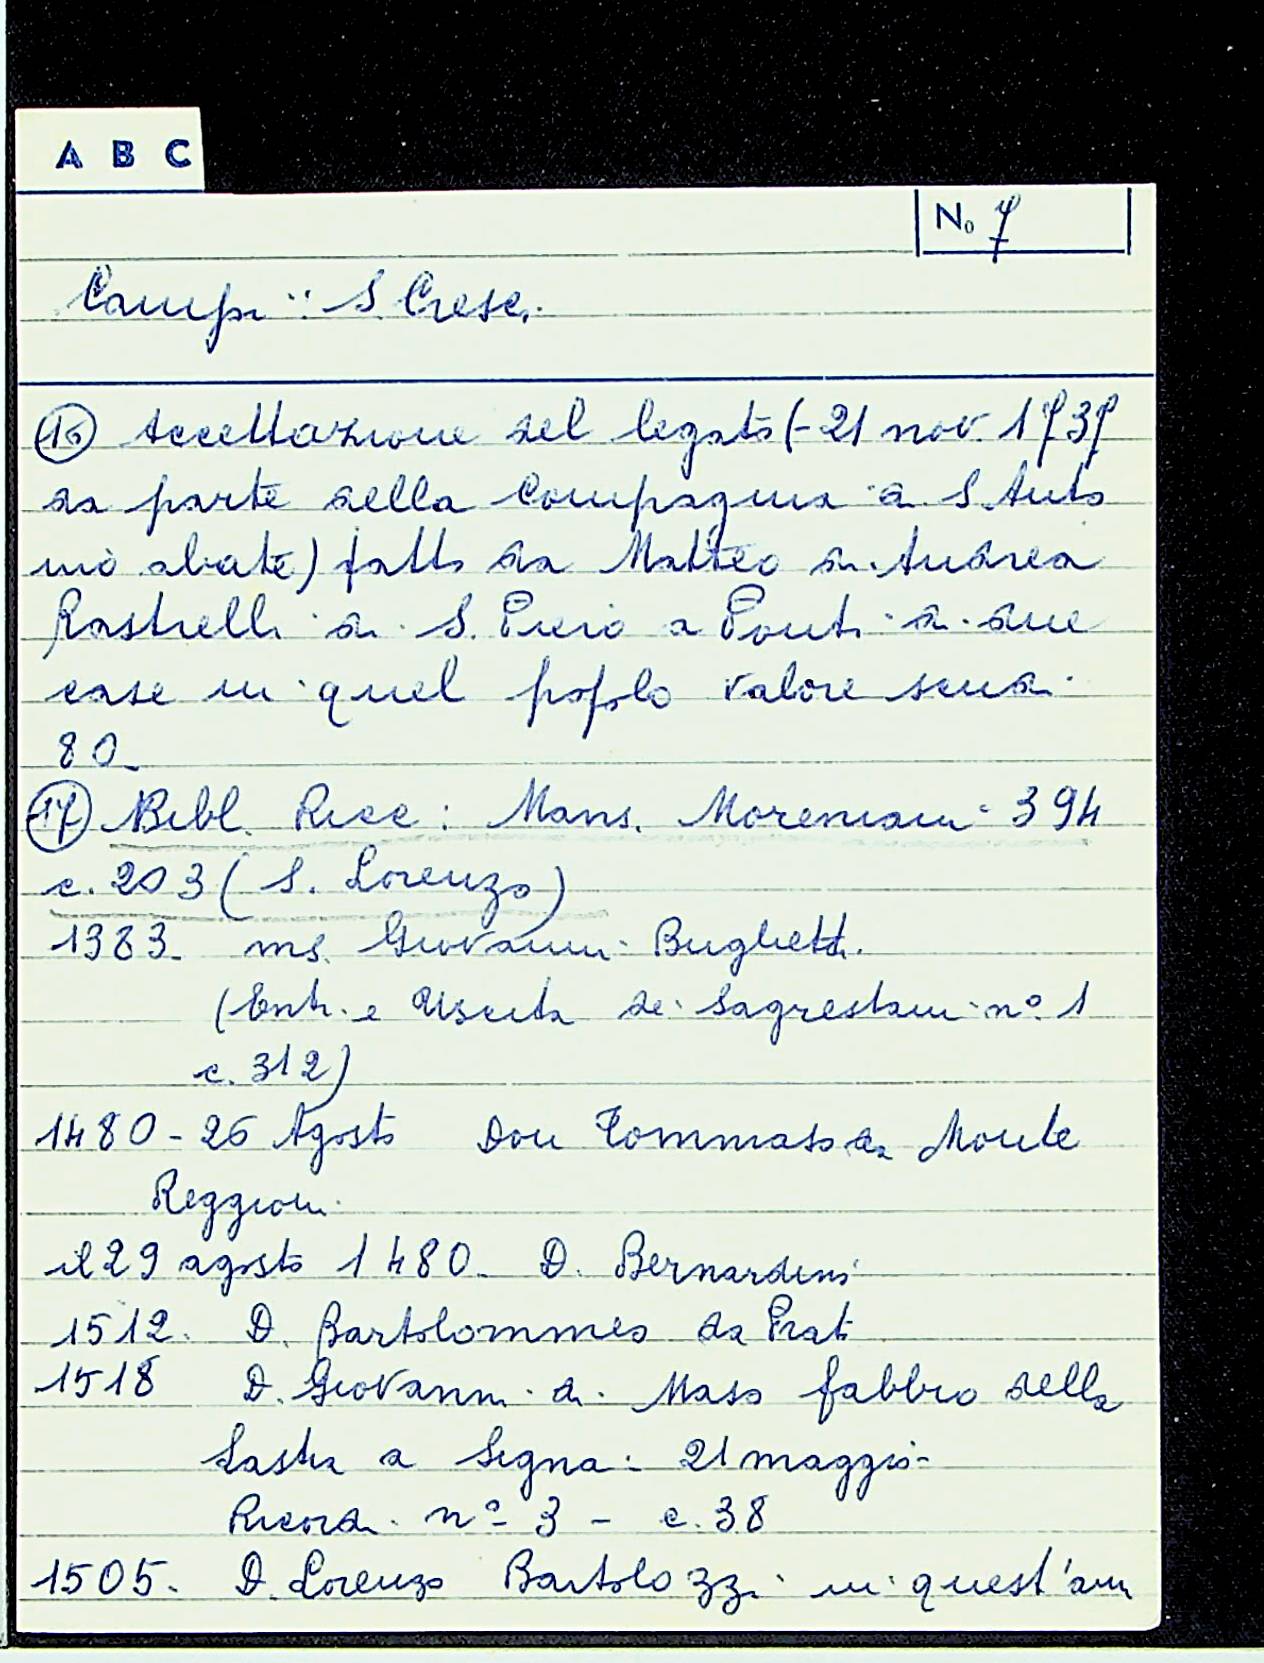 A B C
No 7
Campi: S. Cresc.
16 Accettazione del legato (-21 nov. 1737
da parte della Compagnia di S. Anto
nio abate) fatto da Matteo di Andrea
Rastrelli di S. Piero a Ponti di due
case in quel popolo valore scudi
80.
17 Bibl. Ricc: Mans. Moreniani 394
c. 203 (S. Lorenzo)
1383. ms. Giovanni Buglietti.
(Entr. e Uscita dei Sagrestani nº 1
c. 312)
1480 - 26 Agosto Don Tommaso da Monte
Reggioni
il 29 agosto 1480. D. Bernardino
1512. D. Bartolommeo da Prato
1518 D. Giovanni di Maso fabbro della
Lastra a Segna: 21 maggio -
Ricordi nº 3 - c. 38
1505. D. Lorenzo Bartolozzi in quest'ann